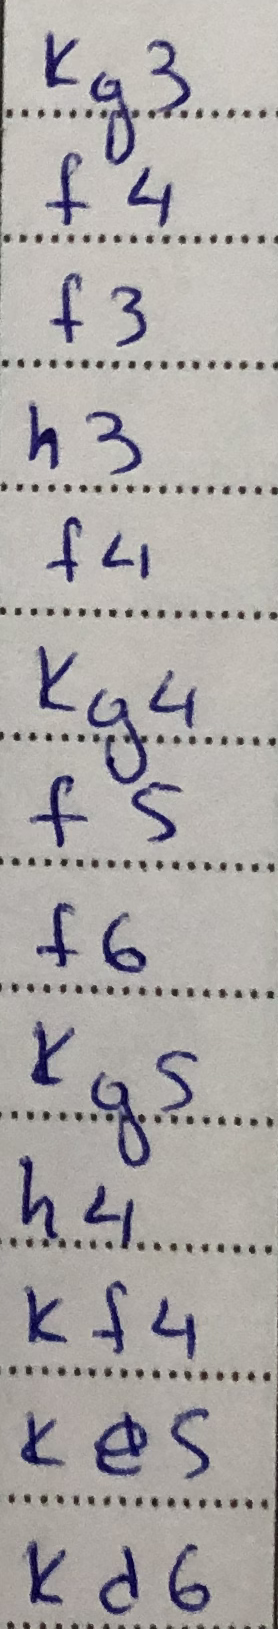 Kg3
f4
f3
h3
f4
Kg4
f5
f6
Kg5
h4
Kf4
Ke5
Kd6